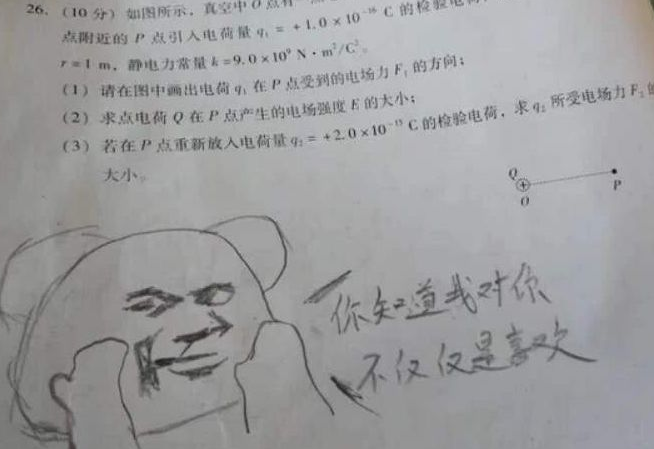 26. (10分) 如图所示，真空中O点有一点
点附近的P点引入电荷量 q₁ = +1.0×10⁻¹⁶ C 的检验电荷，
r=1 m，静电力常量 k=9.0×10⁹ N·m²/C²。
(1) 请在图中画出电荷 q₁ 在P点受到的电场力 F₁ 的方向；
(2) 求点电荷Q在P点产生的电场强度E的大小；
(3) 若在P点重新放入电荷量 q₂ = +2.0×10⁻¹⁵ C 的检验电荷，求 q₂ 所受电场力 F₂ 的
大小。
Q
O
P
你知道我对你
不仅仅是喜欢